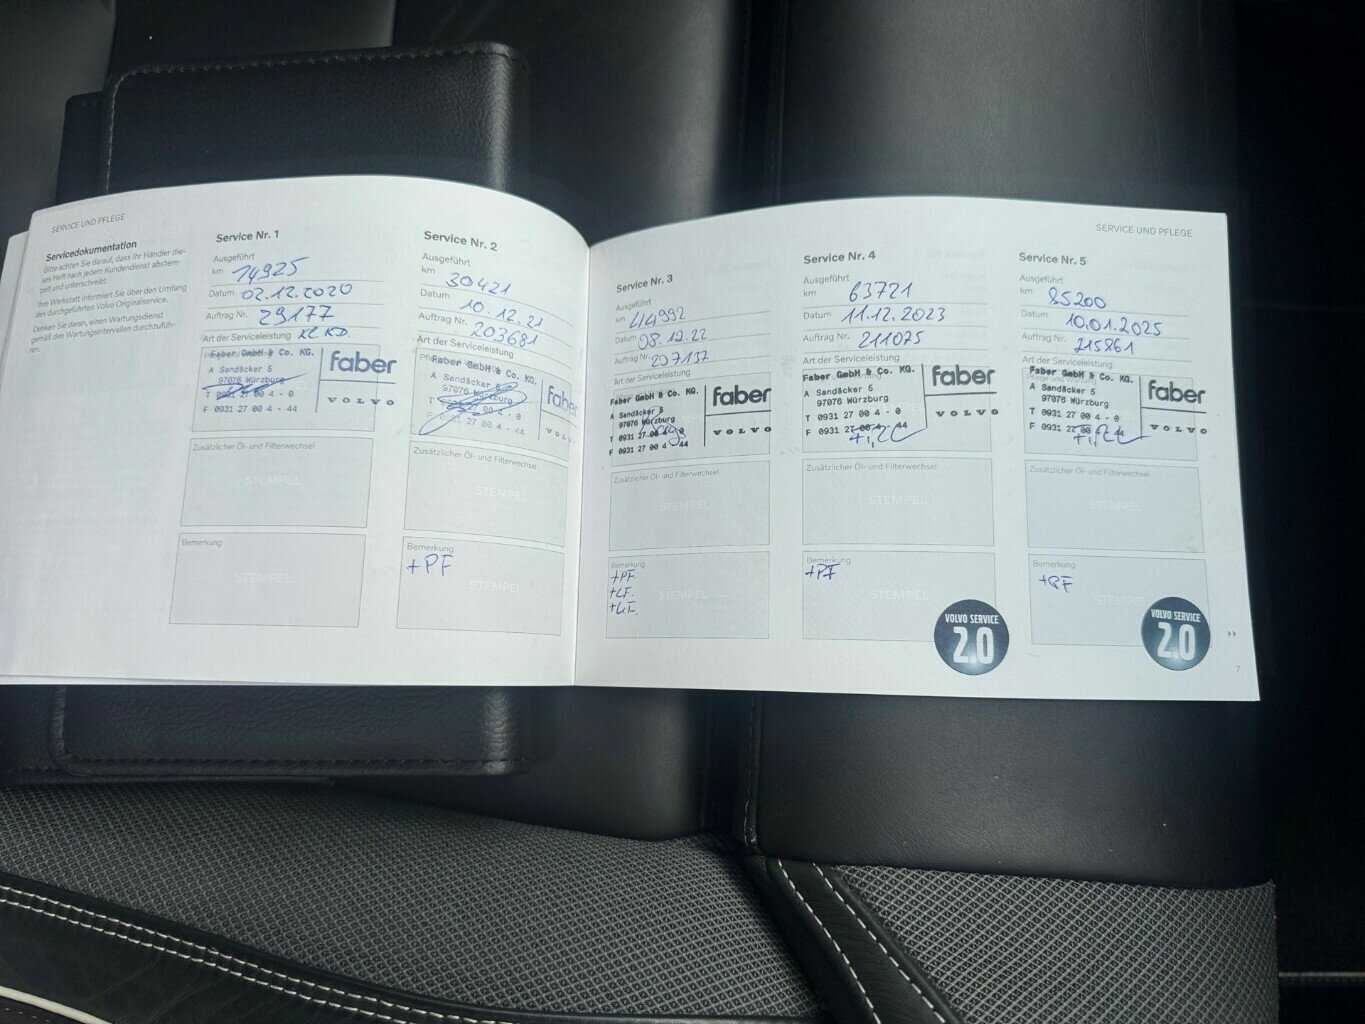 SERVICE UND PFLEGE
Servicedokumentation
Bitte achten Sie darauf, dass Ihr Händler die-
ses Heft nach jedem Kundendienst abstem-
pelt und unterschreibt.
Ihre Werkstatt informiert Sie über den Umfang
des durchgeführten Volvo Originalservice.
Denken Sie daran, einen Wartungsdienst
gemäß den Wartungsintervallen durchzufüh-
ren.
Service Nr. 1
Ausgeführt
km 14925
Datum 02.12.2020
Auftrag Nr. 29177
Art der Serviceleistung
Faber GmbH & Co. KG.
A Sandäcker 5
97076 Würzburg
T 0931 27 00 4 - 0
F 0931 27 00 4 - 44
faber
VOLVO
Zusätzlicher Öl- und Filterwechsel
STEMPEL
Bemerkung
STEMPEL
Service Nr. 2
Ausgeführt
km 30421
Datum 10.12.21
Auftrag Nr. 203681
Art der Serviceleistung
Faber GmbH & Co. KG.
A Sandäcker 5
97076 Würzburg
T 0931 27 00 4 - 0
F 0931 27 00 4 - 44
faber
VOL
Zusätzlicher Öl- und Filterwechsel
STEMPEL
Bemerkung
+PF
STEMPEL
Service Nr. 3
Ausgeführt
km 44992
Datum 08.12.22
Auftrag Nr. 207137
Art der Serviceleistung
Faber GmbH & Co. KG.
A Sandäcker 5
97076 Würzburg
T 0931 27 00 4 - 0
F 0931 27 00 4 - 44
faber
VOLVO
Zusätzlicher Öl- und Filterwechsel
STEMPEL
Bemerkung
+PF
+LF.
STEMPEL
SERVICE UND PFLEGE
Service Nr. 4
Ausgeführt
km 63721
Datum 11.12.2023
Auftrag Nr. 211075
Art der Serviceleistung
Faber GmbH & Co. KG.
A Sandäcker 5
97076 Würzburg
T 0931 27 00 4 - 0
F 0931 27 00 4 - 44
faber
VOLVO
Zusätzlicher Öl- und Filterwechsel
STEMPEL
Bemerkung
+PF
STEMPEL
VOLVO SERVICE
2.0
Service Nr. 5
Ausgeführt
km 85200
Datum 10.01.2025
Auftrag Nr. 215861
Art der Serviceleistung
Faber GmbH & Co. KG.
A Sandäcker 5
97076 Würzburg
T 0931 27 00 4 - 0
F 0931 27 00 4 - 44
faber
VOLVO
Zusätzlicher Öl- und Filterwechsel
STEMPEL
Bemerkung
STEMPEL
VOLVO SERVICE
2.0
››
7